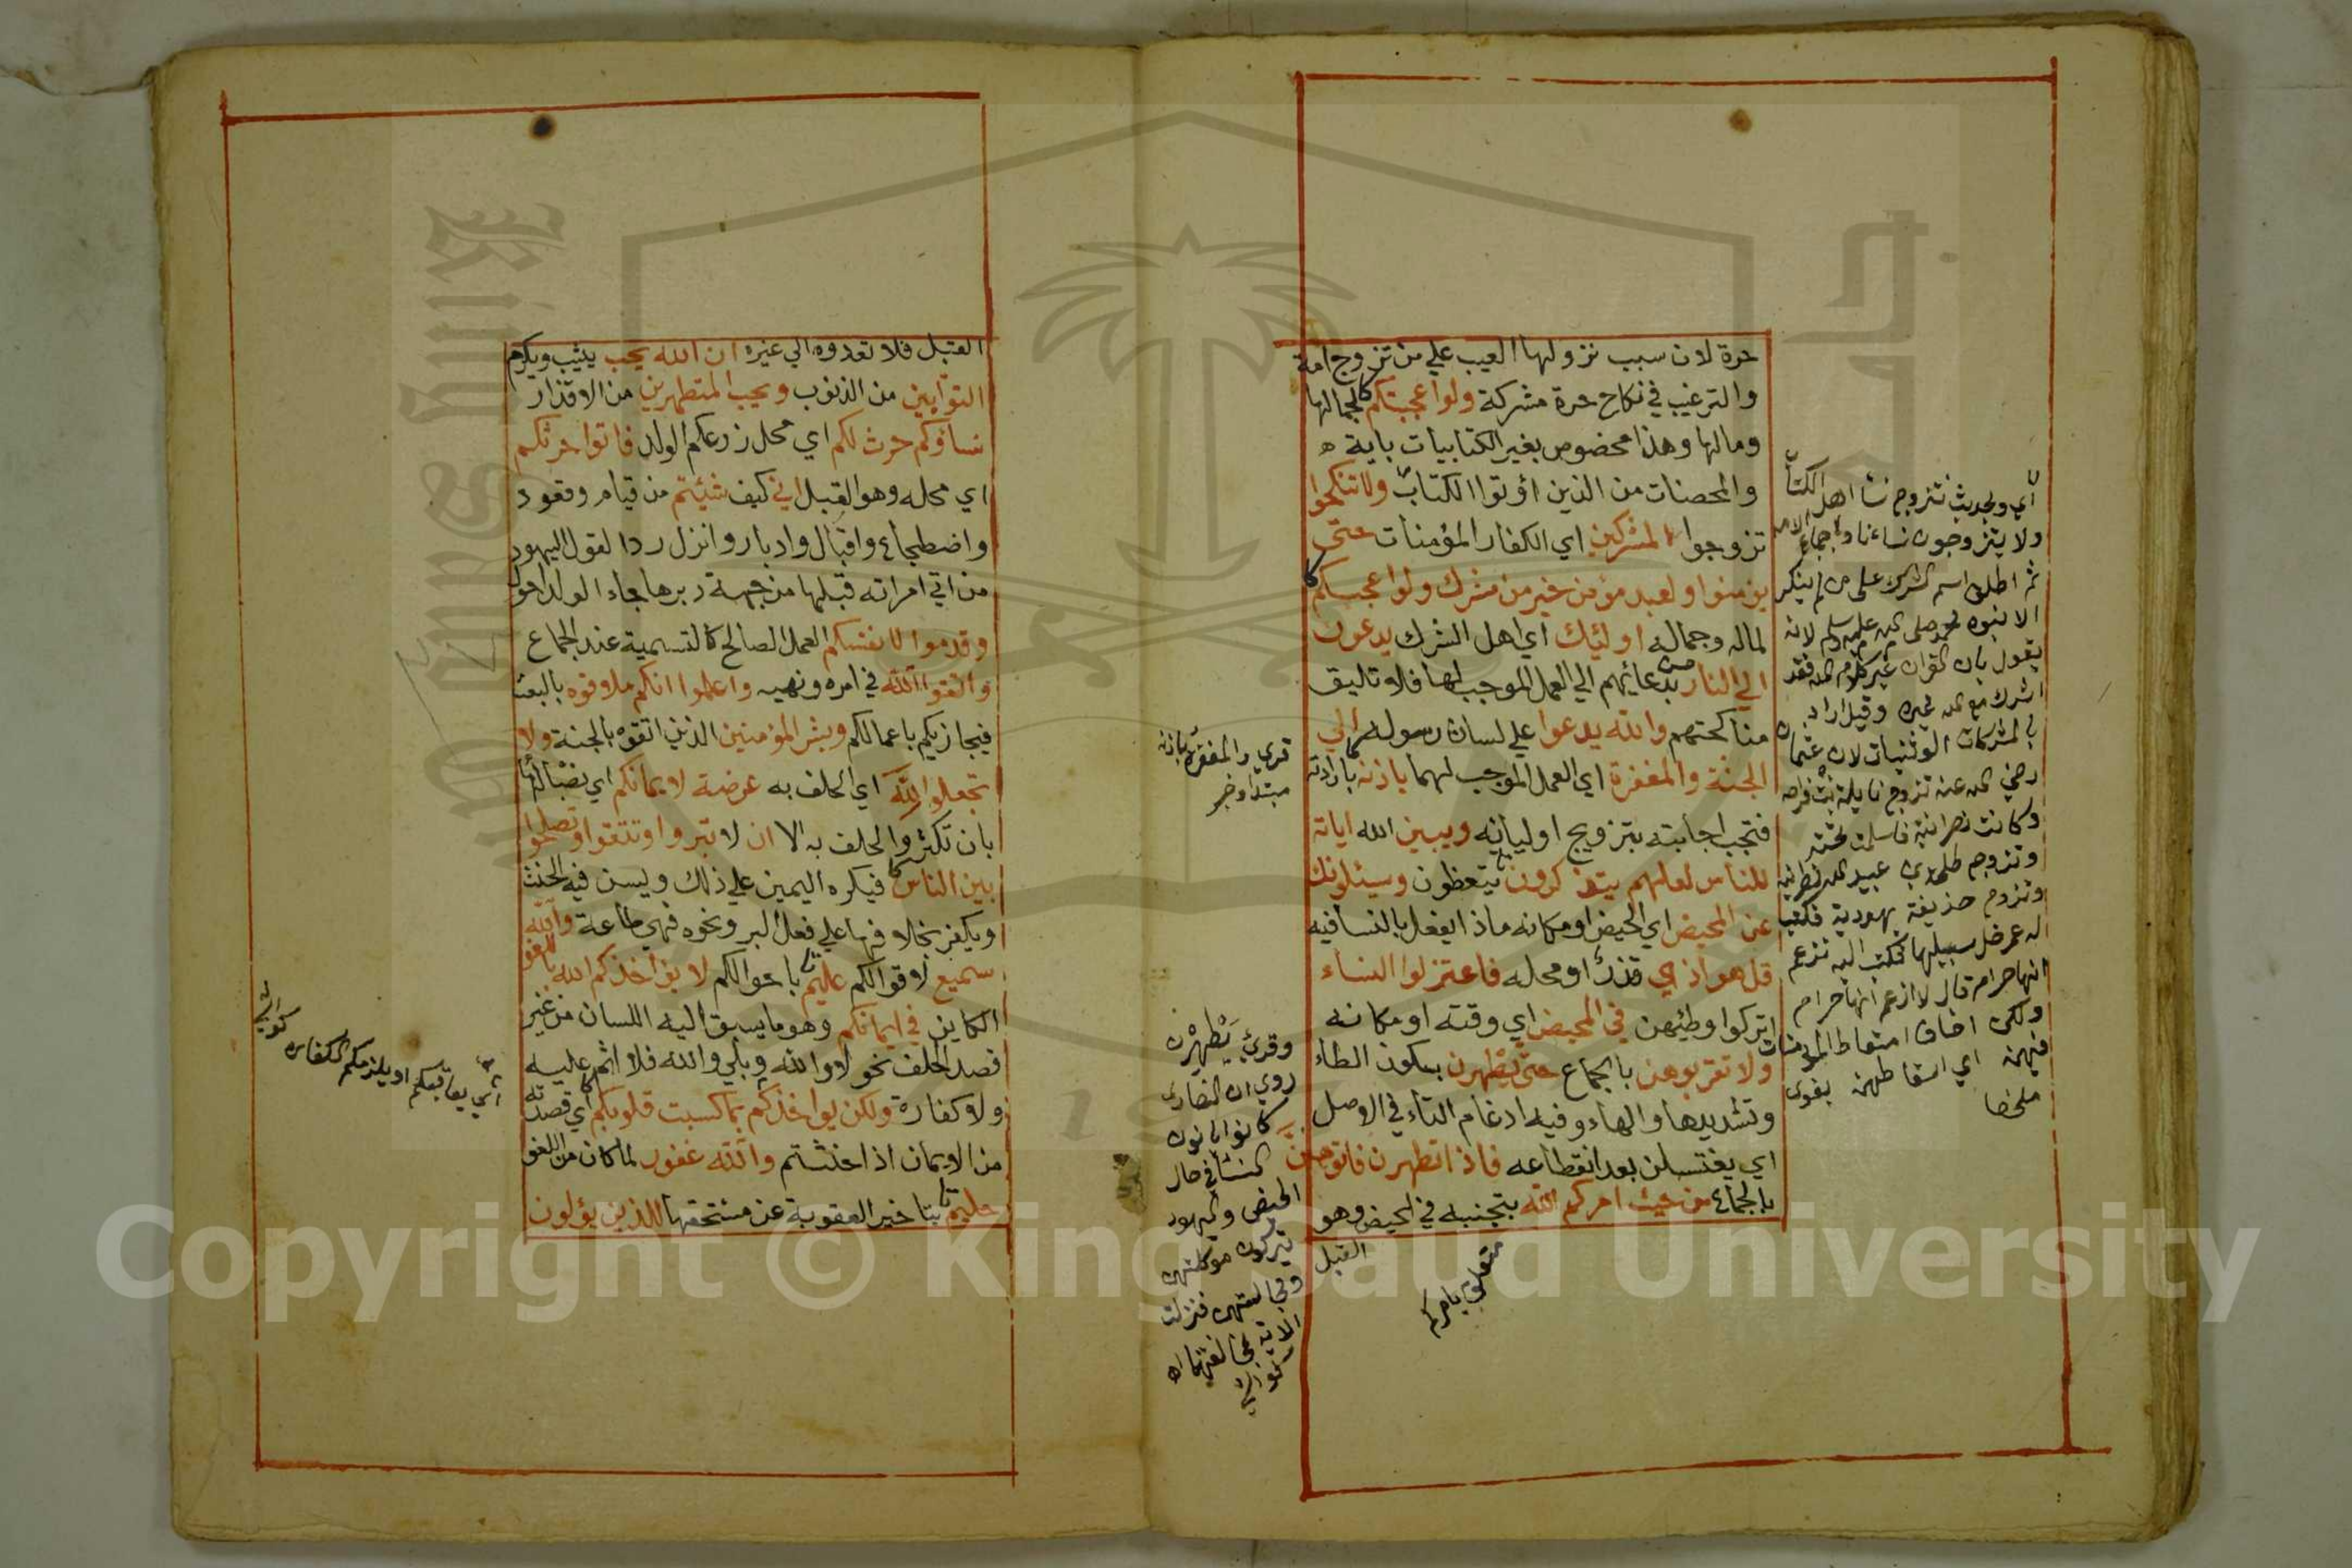 حرة لان سبب نزولها العيب علي من تزوج امة
والترغيب في نكاح حرة مشركة ولو اعجبتكم لجمالها
ومالها وهذا مخصوص بغير الكتابيات باية ه
والمحصنات من الذين اؤتوا الكتاب ولا تنكحوا
تزوجوا المشركين اي الكفار المؤمنات حتى
يؤمنوا ولعبد مؤمن خير من مشرك ولو اعجبكم
لماله وجماله اولئيك اي اهل الشرك يدعون
الي النار بدعائهم الي العمل الموجب لها فلا تاليق
مناكحتهم والله يدعوا علي لسان رسوله الي
الجنة والمغفرة اي العمل الموجب لهما باذنه بارادته
فتجب اجابته بتزويج اوليائه ويبين الله اياته
للناس لعلهم يتذكرون يتعظون وسيئلونك
عن المحيض اي الحيض او مكانه ماذا ايفعل بالنسا فيه
قل هو اذي قذر او محله فاعتزلوا النساء
اتركوا وطئيهن في المحيض اي وقته او مكانه
ولا تقربوهن بالجماع حتى يطهرن بسكون الطاء
وتشديدها والهاء وفيه ادغام التاء في الاوصل
اي يغتسلن بعد انقطاعه فاذا تطهرن فاتوهن
بالجماع من حيث امركم الله بتجنبه في الحيض وهو
القبل
متعلق بامركم
اي ويحديث نتزوج نسا اهل الكتاب
ولا يتزوجون نساءنا واجماع الامة
ثم اطلق اسم الشرك على من لم ينكر
الا نبوة محمد صلى الله عليه وسلم لانه
يقول بان القران غير كلام الله فقد
اشرك مع الله غيره وقيل اراد
بالمشركات الوثنيات لان عثمان
رضي الله عنه تزوج نايلة بنت فرافصه
وكانت نصرانية فاسلمت تحته
وتزوج طلحة بن عبيد الله نصرانية
وتزوج حذيفة يهودية فكتب
له عمر خل سبيلها فكتب اليه تزعم
انها حرام قال لا ازعم انها حرام
ولكن اخاف
قري والمغفرة باذنه
مبتدا وخبر
وقرئ يتطهرن
روي ان النصاري
كانوا ياتون
النسا في حال
الحيض واليهود
يتركون مواكلتهن
ومجالستهن فنزلت
الاية
القبل فلا تعدوه الي غيره ان الله يحب يثيب ويكرم
التوابين من الذنوب ويحب المتطهرين من الاقذار
نساؤكم حرث لكم اي محل زرعكم الولد فاتوا حرثكم
اي محله وهو القبل اني كيف شئيتم من قيام وقعود
واضطجاع واقبال وادبار وانزل ردا لقول اليهود
من اتي امراته في قبلها من جهة دبرها جاء الولد احول
وقدموا لانفسكم العمل الصالح كالتسمية عند الجماع
واتقوا الله في امره ونهيه واعلموا انكم ملاقوه بالبعث
فيجازيكم باعمالكم وبشر المؤمنين الذين اتقوه بالجنة ولا
تجعلوا الله اي الحلف به عرضة لايمانكم اي نصبا لها
بان تكثروا الحلف به الا ان لا تبروا وتتقوا وتصلحوا
بين الناس فيكره اليمين علي ذلك ويسن فيه الحنث
ويكفر بخلافها علي فعل البر ونحوه فهي طاعة والله
سميع لاقوالكم عليم باحوالكم لا يؤاخذكم الله باللغو
الكاين في ايمانكم وهو ما يسبق اليه اللسان من غير
قصد الحلف نحو لا والله وبلي والله فلا اثم عليه
ولا كفارة ولكن يواخذكم بما كسبت قلوبكم اي قصدته
من الايمان اذا حنثتم والله غفور لما كان من اللغو
حليم بتاخير العقوبة عن مستحقها للذين يؤلون
اي يعاقبكم او يلزمكم الكفارة
Copyright © King Saud University